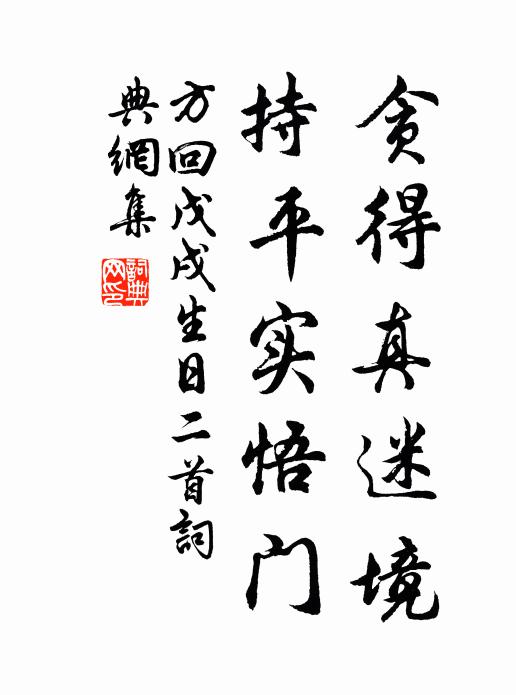 贪得真迷境
持平实悟门
方回戊戌生日二首詞
典網集
詞典
网印